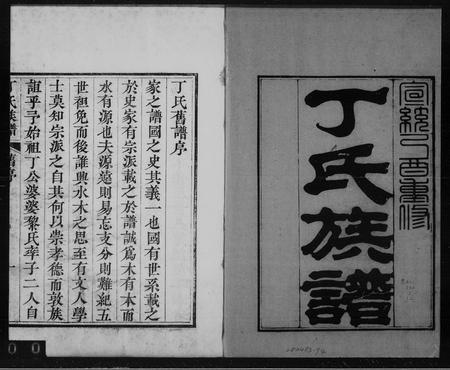 宣統己酉重修
丁氏族譜
丁氏舊譜序
家之譜國之史其義一也國有世系載之
於史家有宗派載之於譜誠爲木有本而
水有源也夫源遠則易忘支分則難紀五
世袒免而後誰興水木之思至有文人學
士莫知宗派之自其何以崇孝德而敦族
誼乎予始祖丁公婆婆黎氏率子二人自
丁氏族譜 舊序 一
0 0